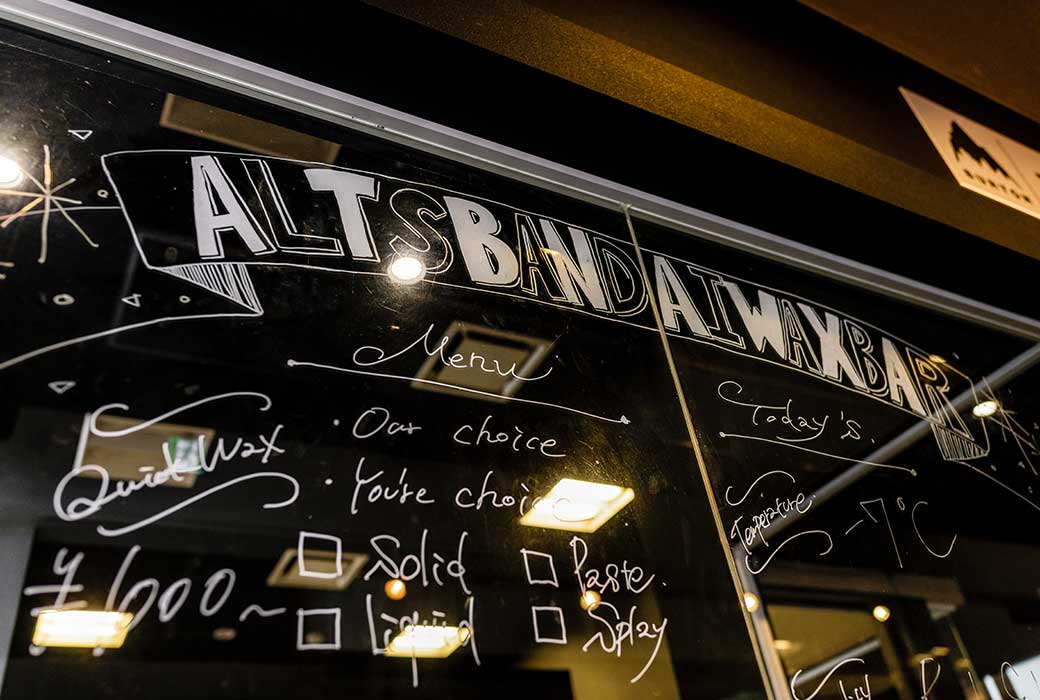 ALTS BANDAI WAX BAR
BURTON
Menu
Quick Wax
・Our choice
・You're choice
¥1600~
□ Solid □ Paste.
□ Liquid □ Splay
Today's.
Temperature.
-7℃